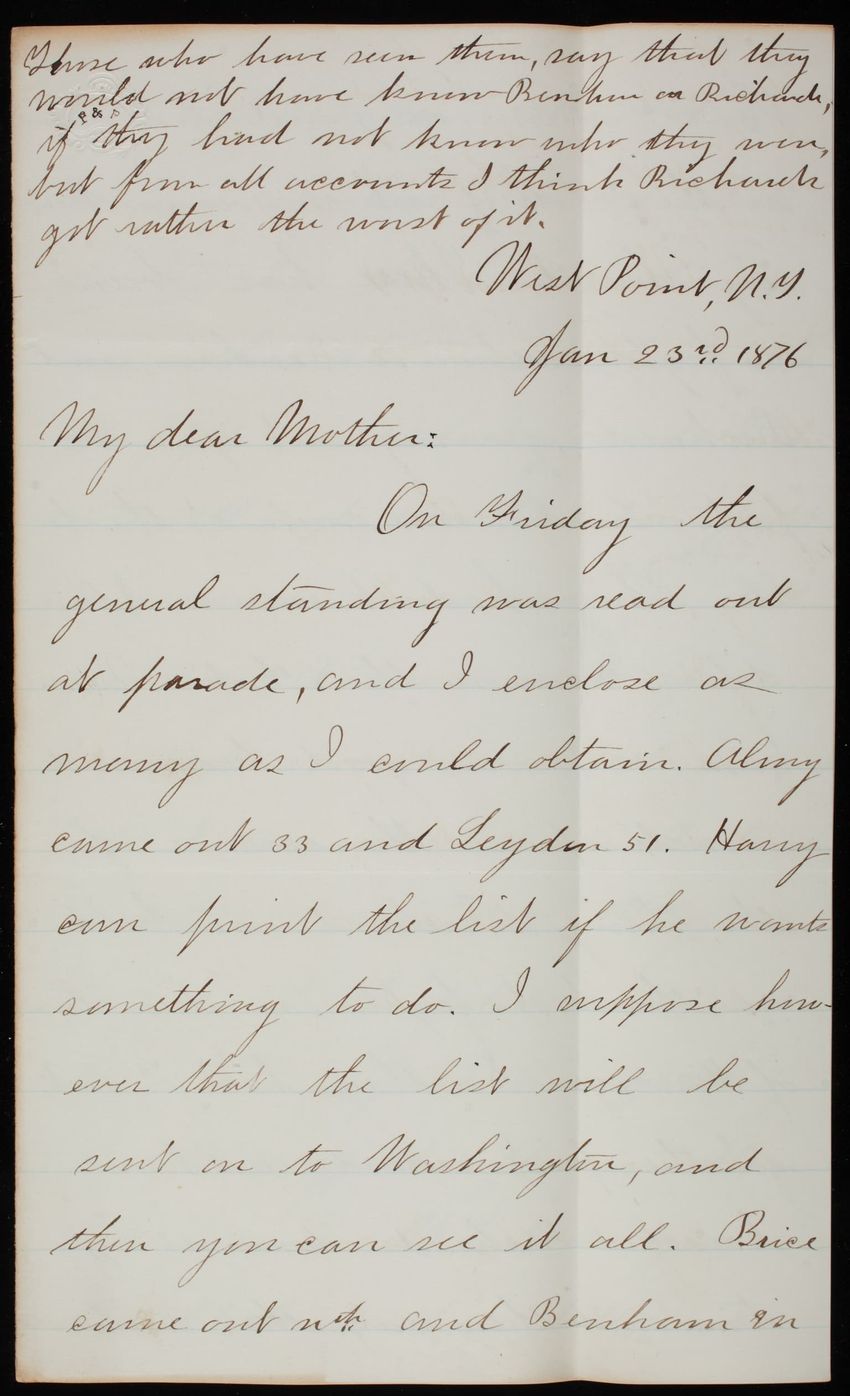 Those who have seen them, say that they
would not have known Benham or Richards,
P & P
if they had not known who they were,
but from all accounts I think Richards
got rather the worst of it.
West Point, N.Y.
Jan 23rd 1876
My dear Mother:
On Friday the
general standing was read out
at parade, and I enclose as
many as I could obtain. Almy
came out 33 and Leyden 51. Harry
can print the list if he wants
something to do. I suppose how-
ever that the list will be
sent on to Washington, and
then you can see it all. Brice
came out nth and Benham in